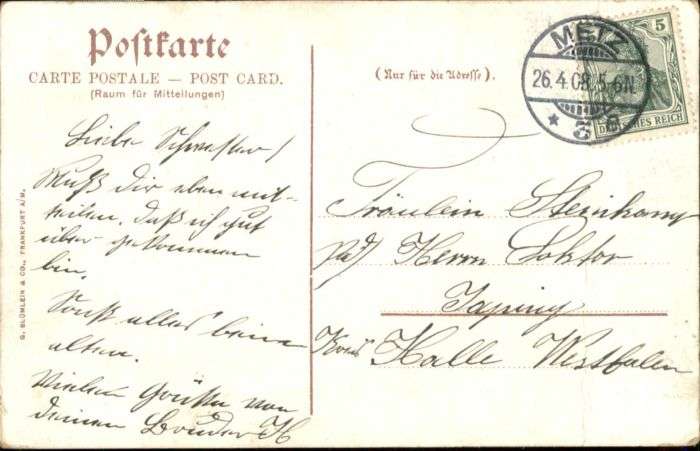 Postkarte
CARTE POSTALE — POST CARD.
(Raum für Mitteilungen)
Liebe Schwester!
Muß Dir eben mit-
teilen, daß ich gut
über gekommen
bin,
Sonst alles beim
alten.
Vielen Grüße von
deinem Bruder H
G. BLÜMLEIN & CO., FRANKFURT A/M.
(Nur für die Adresse).
METZ
26.4.08.5-6N.
* 3
5
DEUTSCHES REICH
Fräulein Steinkamp
Herrn Doktor
Kreis Halle Westfalen